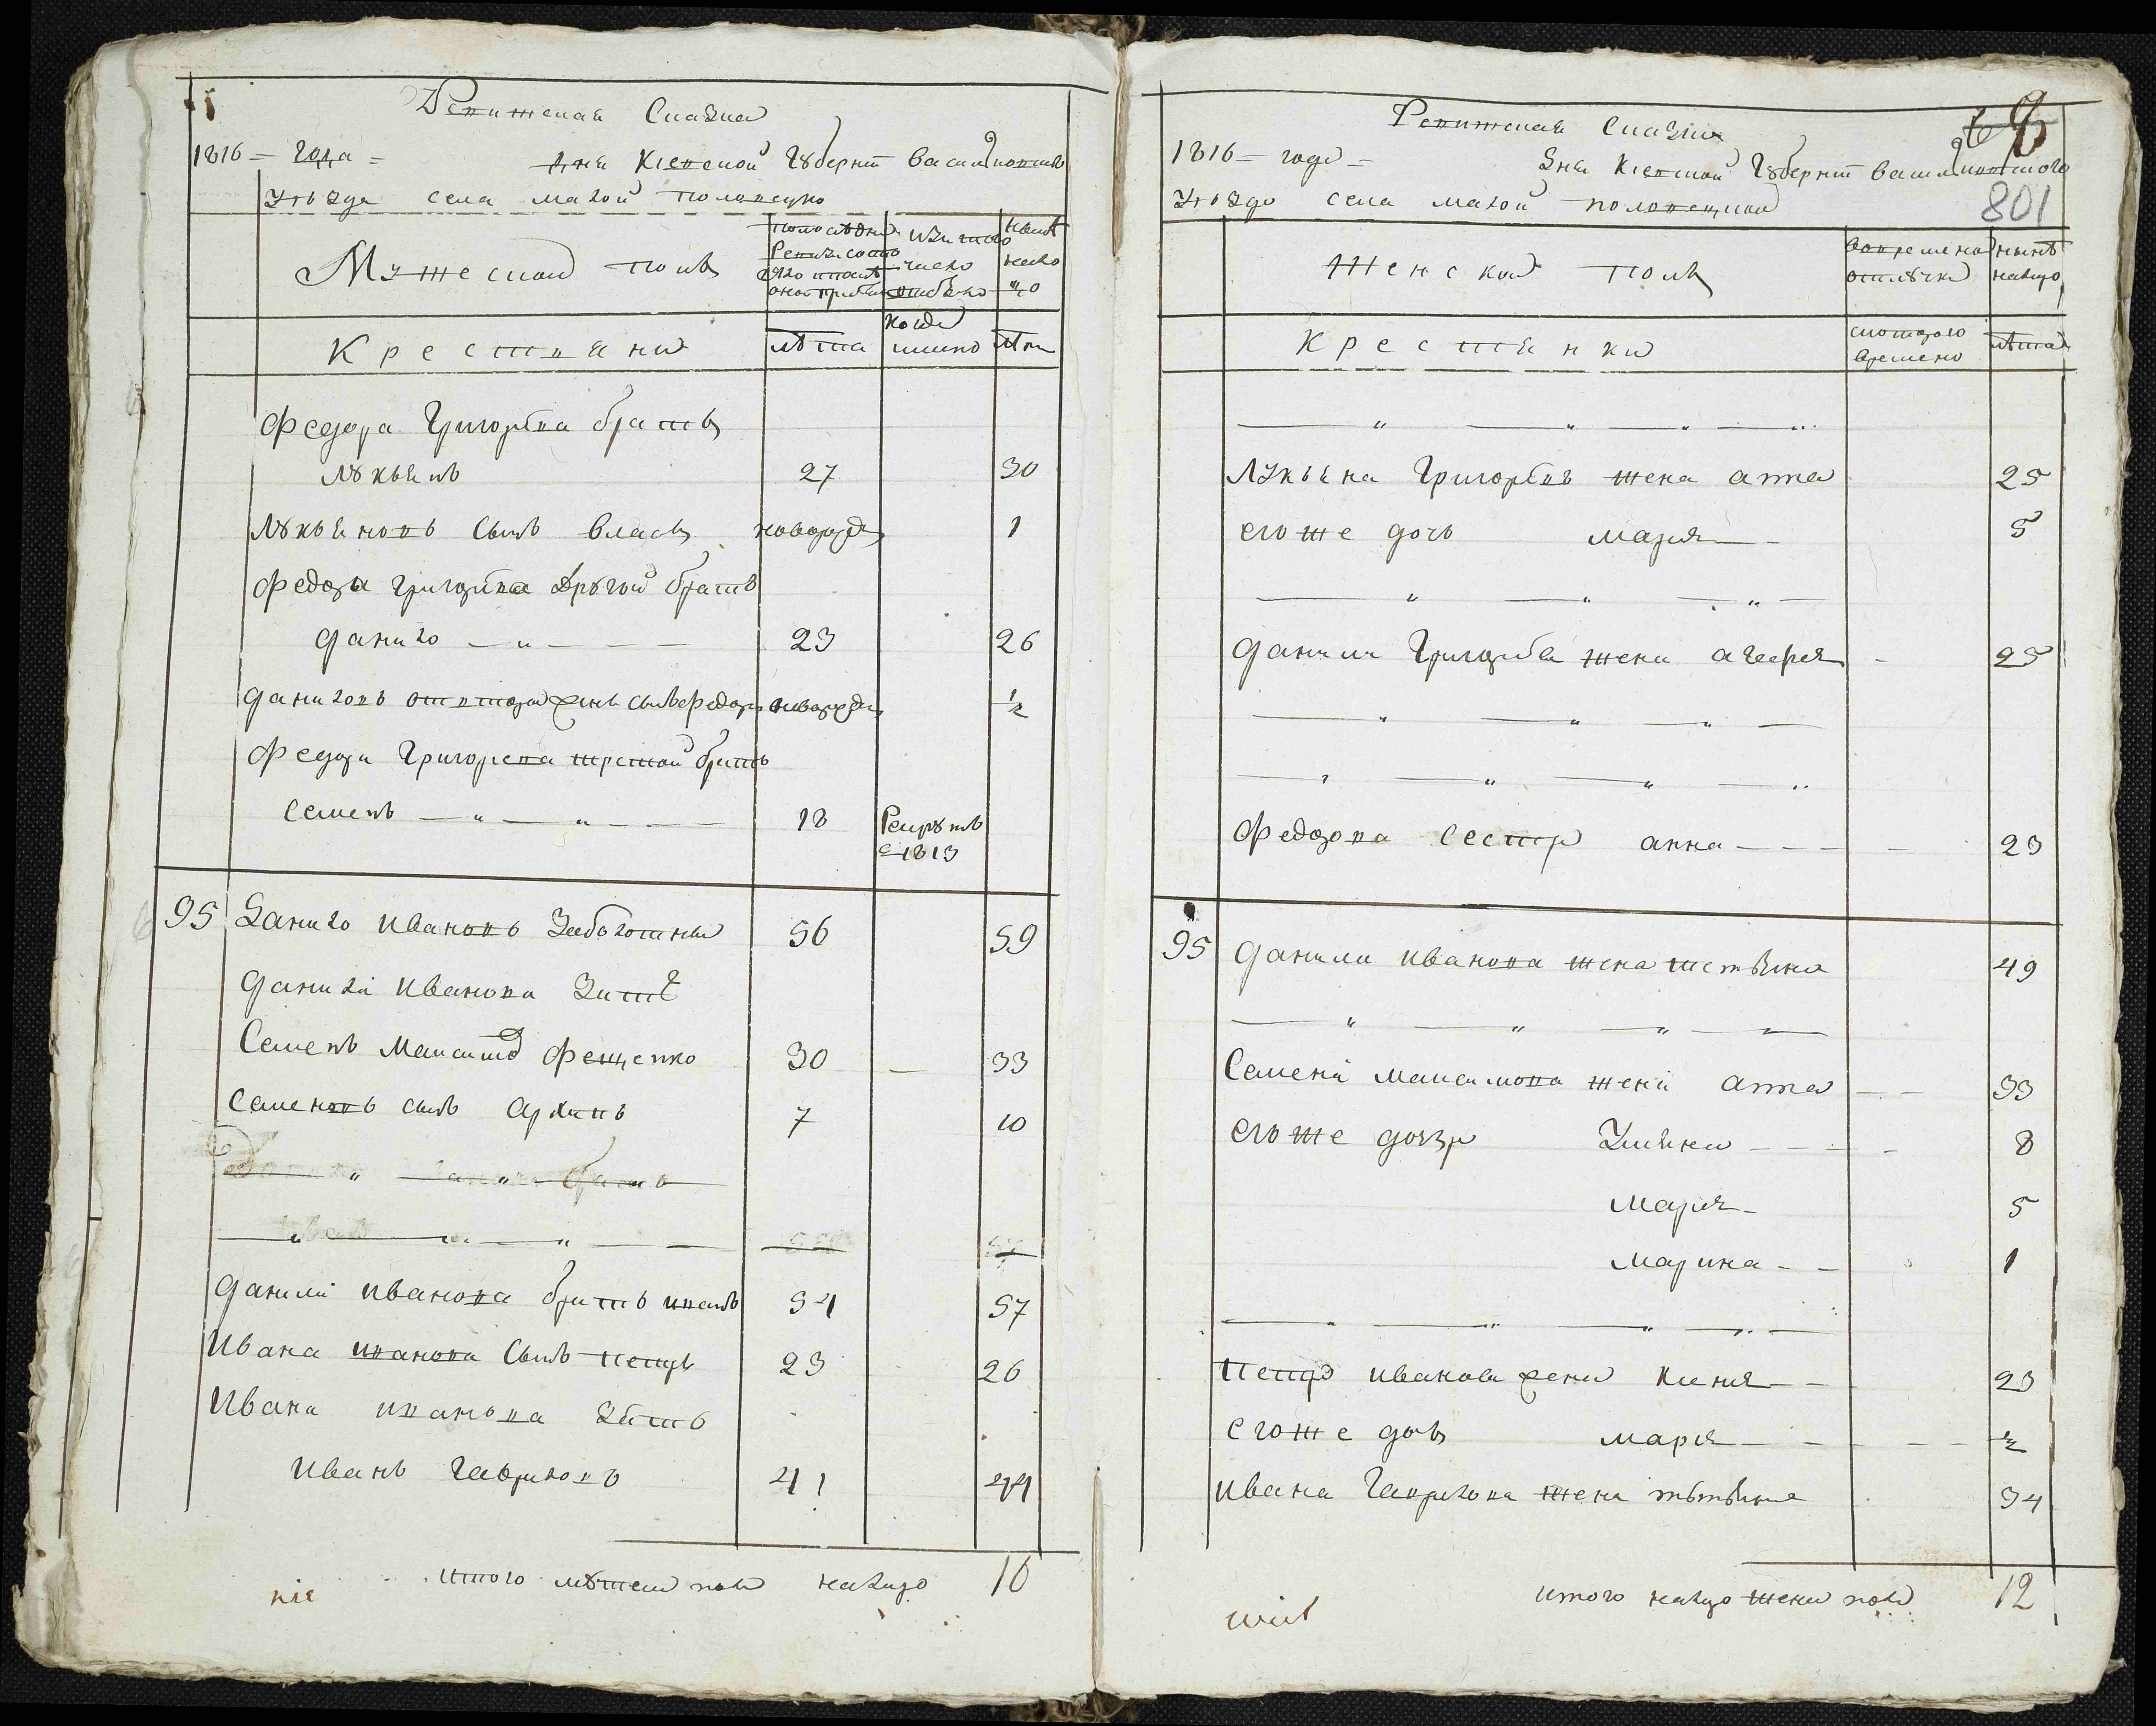 Ревижская Сказка
1816 = года = дня Киевской Губернт Василковского
Уѣзда села малой половецко
Мужеской полъ
по последней Ревизiи состояло и послѣ оной прибыло
изъ того число выбыло
нынѣ налицо
Крестяни
лѣта
когда имено
лѣта
Федора Григорева братъ
Лукъянъ 27 30
Лукъяновъ сынъ власъ новорожд 1
Федора Григорева другой братъ
данило 23 26
даниловъ от второй жены сынъ Федоръ новорожд ½
Федора Григорева третой братъ
Семенъ 18 Рекрутъ в 1813
95 Данило Ивановъ Заболотны 56 59
данила Иванова зять
Семенъ Максимов Фещенко 30 33
Семеновъ сынъ Архипъ 7 10
братъ
данила иванова братъ иванъ 54 57
Ивана иванова сынъ петръ 23 26
Ивана иванова зять
Иванъ гавриловъ 41 44
итого мужеска пола налицо 10
nie
Ревижская Сказка
8
1816 = года = Дня Киевской Губернт василковского
801
Уѣзда села малой половецкой
Женской полъ
во временой отлучки
нынѣ налицо
Крестянки
с которого времено
лѣта
Лукъяна Григоревъ жена анна 25
его же дочъ мария 5
данила Григорева жена агафия 25
Федорова сестра анна 23
95 данила иванова жена тетьяна 49
Семена максимова жена анна 33
его же дочери Улияна 8
мария 5
марина 1
петра иванова жена ксения 23
его же дочъ мария ½
ивана Гаврилова жена тетьяна 34
итого налицо женска пола 12